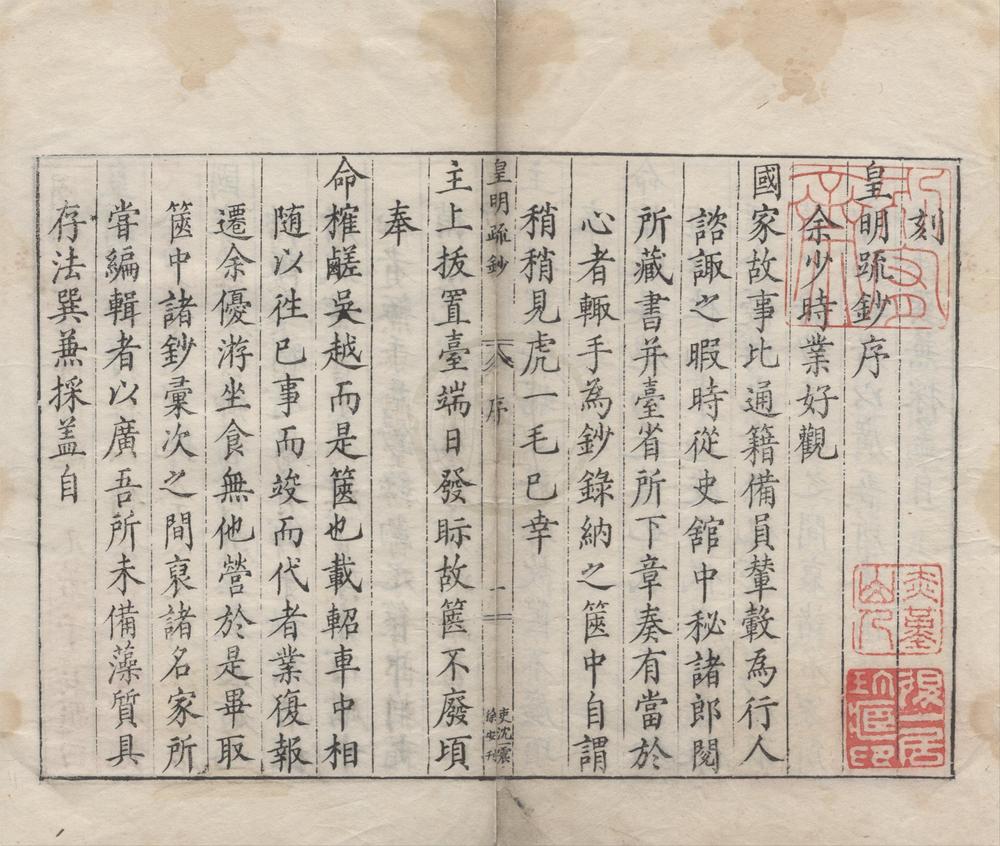 刻
皇明疏鈔序
余少時業好觀
國家故事比通籍備員輦轂為行人
諮諏之暇時從史舘中秘諸郎閱
所藏書并臺省所下章奏有當於
心者輙手為鈔錄納之篋中自謂
稍稍見虎一毛已幸
皇明疏鈔 序 一
吏沈一震
徐安刊
主上拔置臺端日發眎故篋不廢頃
奉
命榷鹺吳越而是篋也載軺車中相
随以徃巳事而竣而代者業復報
遷余優游坐食無他營於是畢取
篋中諸鈔彙次之間裒諸名家所
甞編輯者以廣吾所未備藻質具
存法巽蒹採盖自